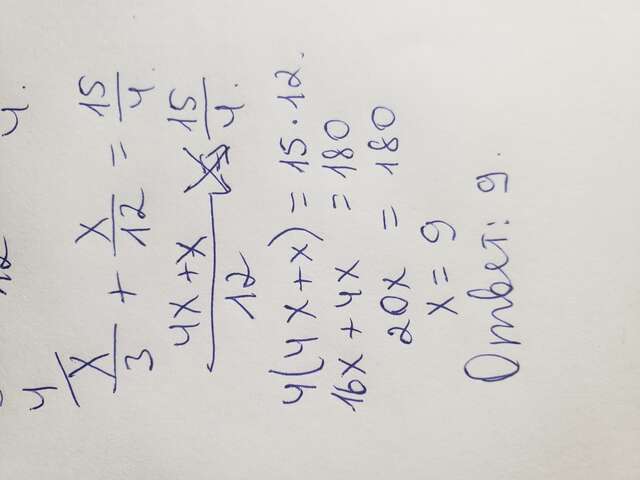 4.
12
4
x/3 + x/12 = 15/4.
(4x+x)/12 = 15/4.
4(4x+x) = 15·12.
16x+4x = 180
20x = 180
x = 9
Ответ: 9.